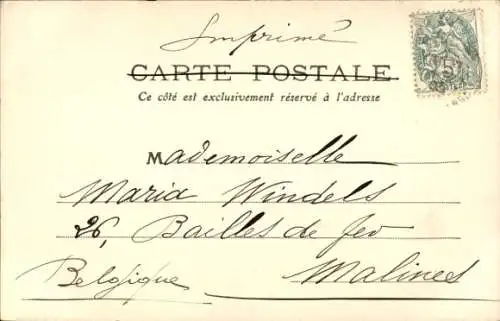 Imprimé
CARTE POSTALE
Ce côté est exclusivement réservé à l'adresse
Mademoiselle
Maria Windels
26, Bailles de fer
Malines
Belgique